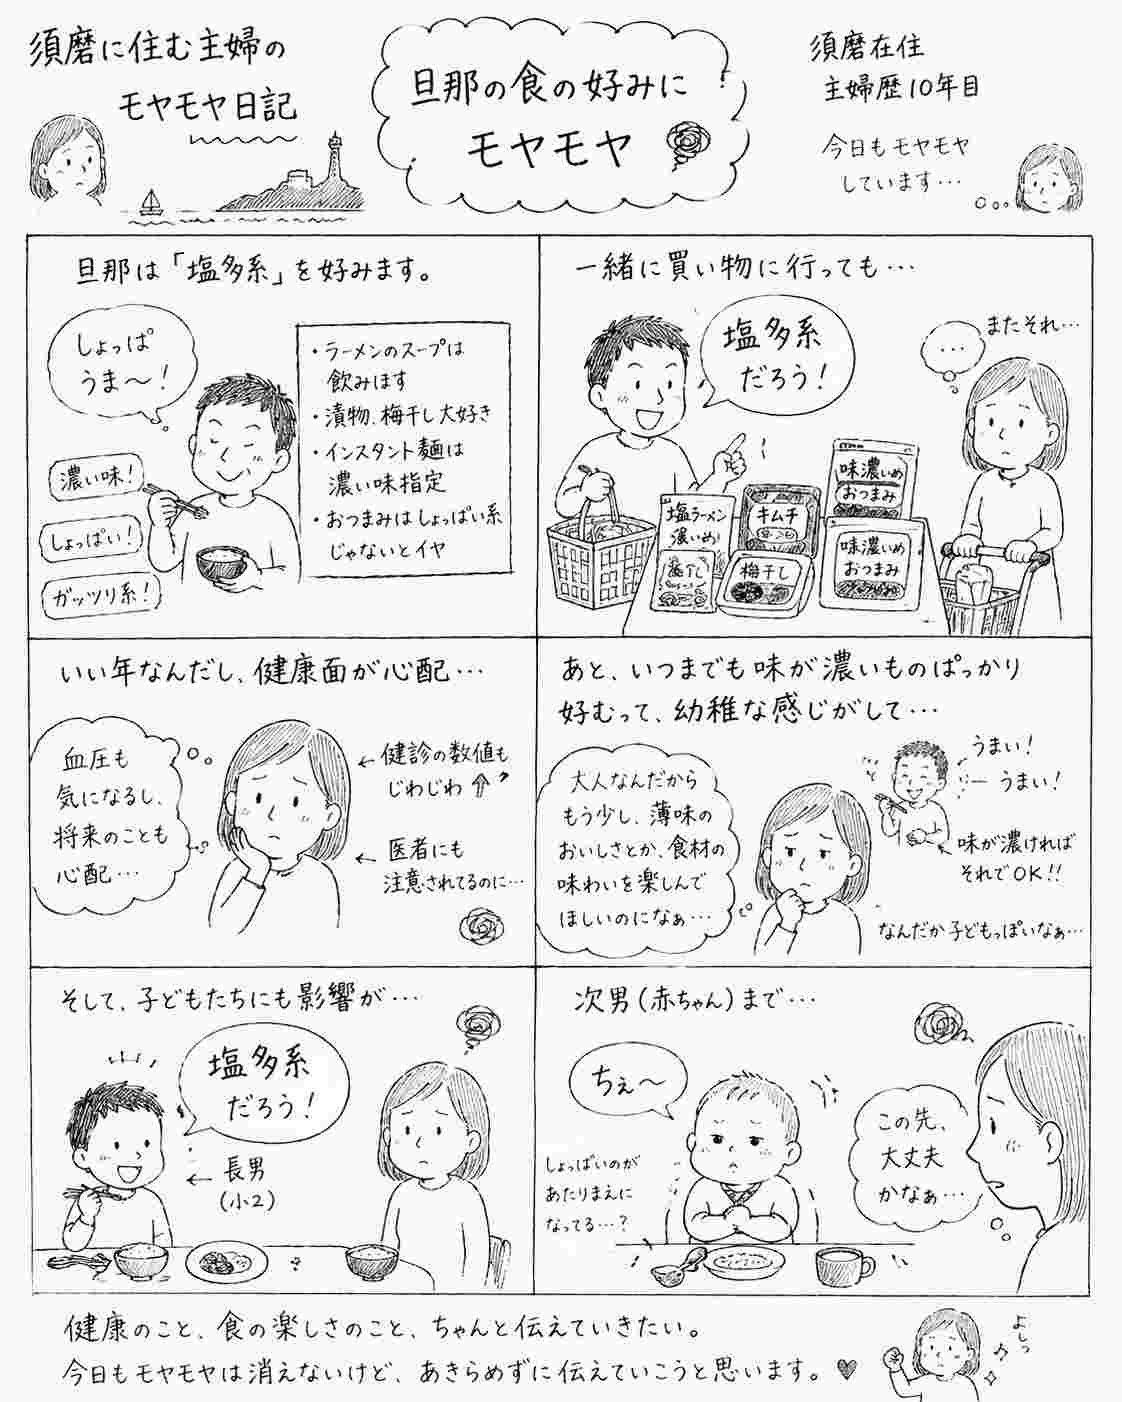 須磨に住む主婦の
モヤモヤ日記
旦那の食の好みに
モヤモヤ
須磨在住
主婦歴10年目
今日もモヤモヤ
しています…
旦那は「塩多系」を好みます。
しょっぱ
うま〜！
濃い味！
しょっぱい！
ガッツリ系！
・ラーメンのスープは
飲みほす
・漬物、梅干し大好き
・インスタント麺は
濃い味指定
・おつまみはしょっぱい系
じゃないとイヤ
一緒に買い物に行っても…
塩多系
だろう！
…
またそれ…
塩ラーメン
濃いめ
キムチ
梅干し
味濃いめ
おつまみ
味濃いめ
おつまみ
いい年なんだし、健康面が心配…
血圧も
気になるし、
将来のことも
心配…
←健診の数値も
じわじわ⇧
←医者にも
注意されてるのに…
あと、いつまでも味が濃いものばっかり
好むって、幼稚な感じがして…
大人なんだから
もう少し、薄味の
おいしさとか、食材の
味わいを楽しんで
ほしいのになぁ…
うまい！
うまい！
味が濃ければ
それでOK!!
なんだか子どもっぽいなぁ…
そして、子どもたちにも影響が…
塩多系
だろう！
←長男
(小2)
次男(赤ちゃん)まで…
ちぇ〜
しょっぱいのが
あたりまえに
なってる…？
この先、
大丈夫
かなぁ…
健康のこと、食の楽しさのこと、ちゃんと伝えていきたい。
今日もモヤモヤは消えないけど、あきらめずに伝えていこうと思います。♥
よしっ